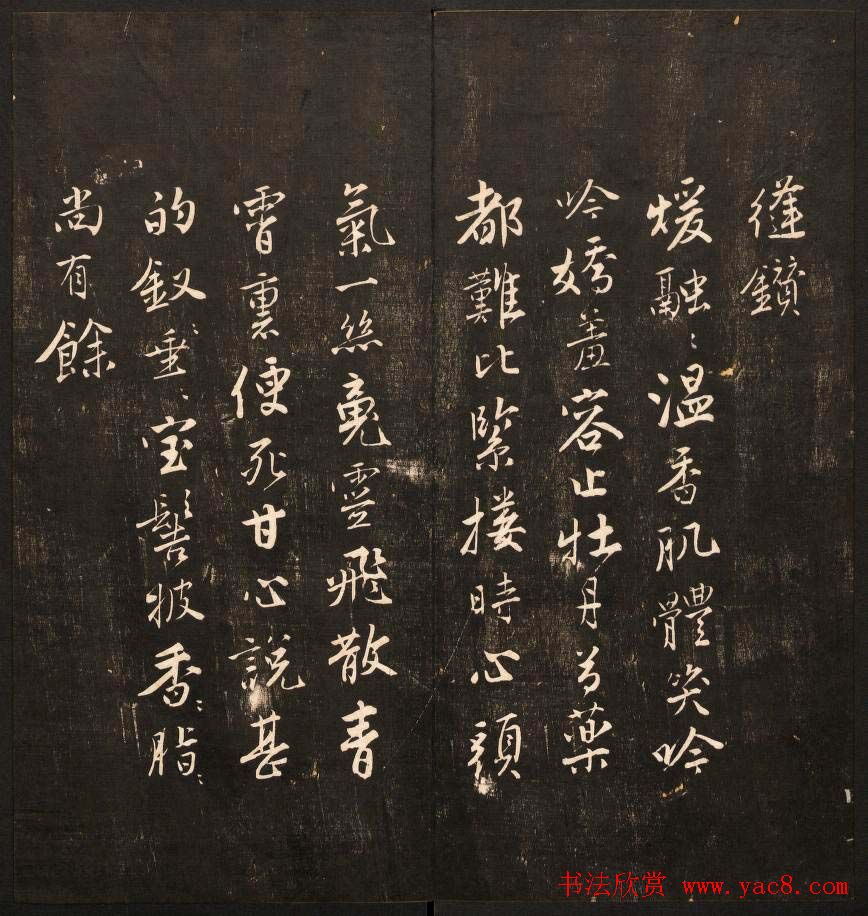 縫鑽
煖融〻温香肌體笑吟
吟嬌羞容止牡丹芍藥
都難比緊摟時心頭
氣一絲竟靈飛散青
霄裏便死甘心說甚
的釵〻垂〻宝髻披香〻脂〻
尚有餘
书法欣赏 www.yac8.com